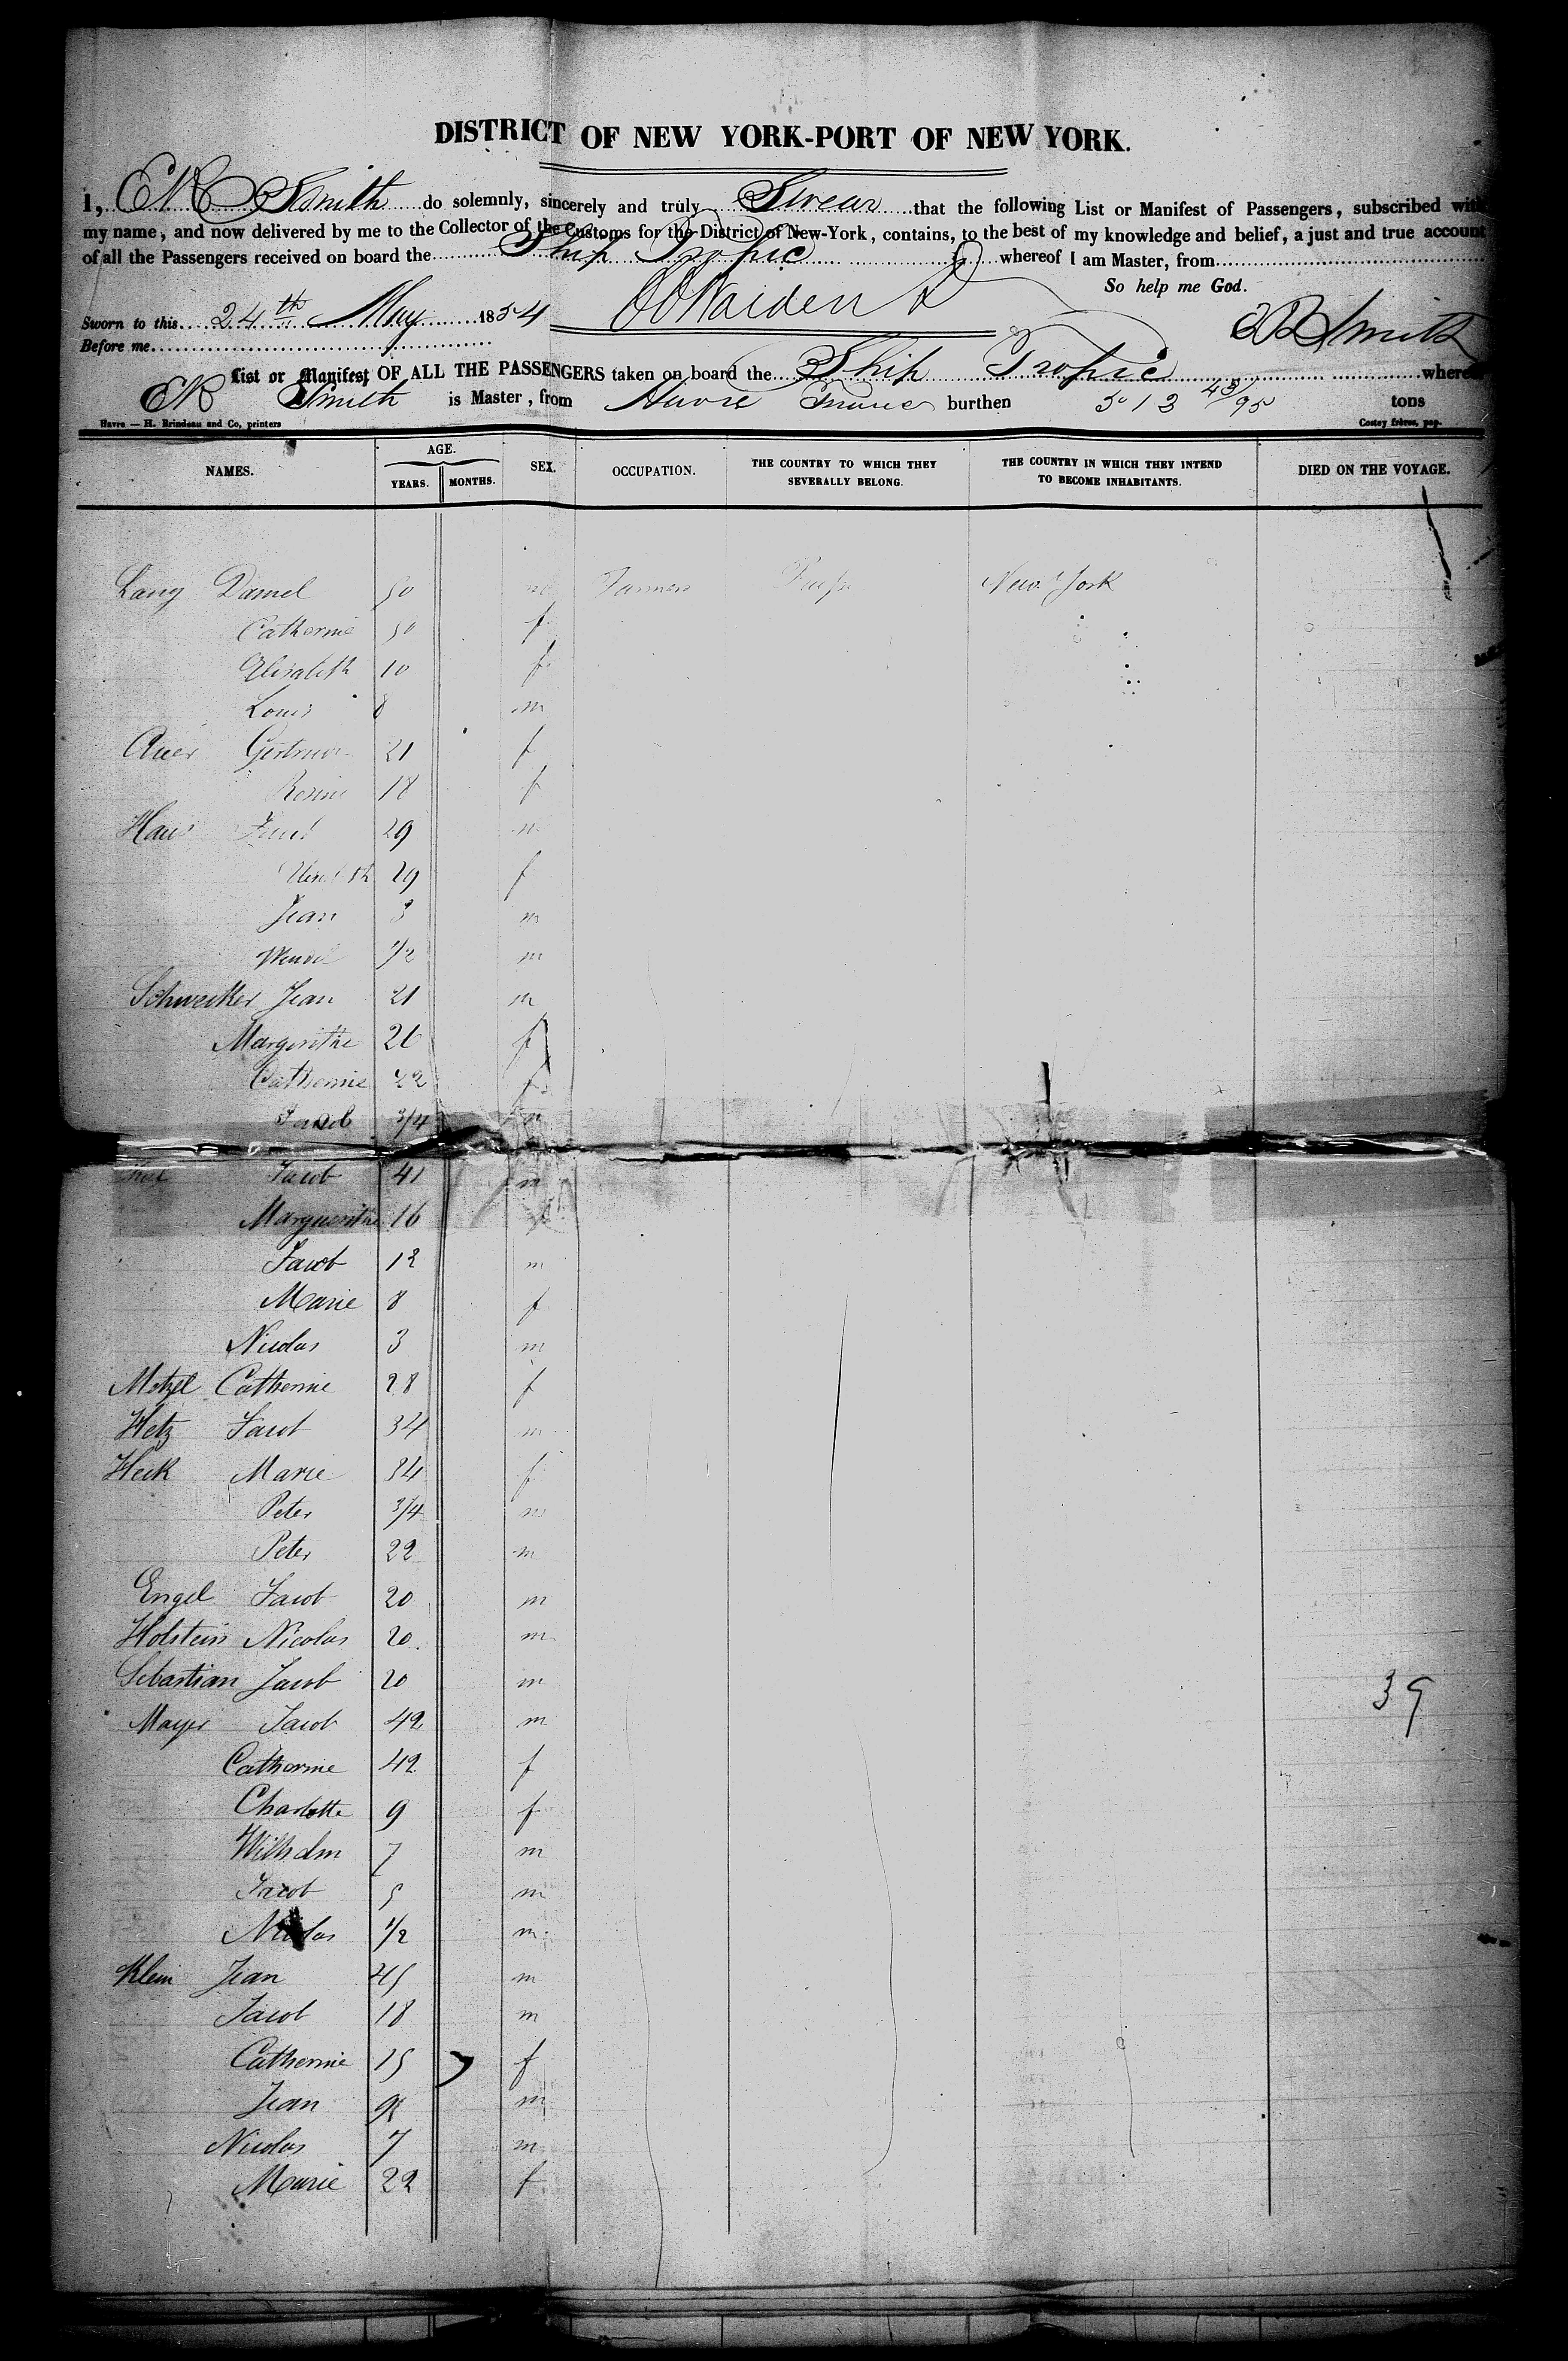 DISTRICT OF NEW YORK-PORT OF NEW YORK.
I, Smith do solemnly, sincerely and truly Swear that the following List or Manifest of Passengers, subscribed with
my name, and now delivered by me to the Collector of the Customs for the District of New-York, contains, to the best of my knowledge and belief, a just and true account
of all the Passengers received on board the Ship Tropic whereof I am Master, from
So help me God.
Sworn to this 24th May 1854
Before me
Smith
List or Manifest OF ALL THE PASSENGERS taken on board the Ship Tropic whereof
Smith is Master, from Havre France burthen 513 45/95 tons
Havre — H. Brindeau and Co, printers Costey frères, pap.
NAMES. AGE. YEARS. MONTHS. SEX. OCCUPATION. THE COUNTRY TO WHICH THEY SEVERALLY BELONG. THE COUNTRY IN WHICH THEY INTEND TO BECOME INHABITANTS. DIED ON THE VOYAGE.
Lang Daniel 50 m Farmers New York
Catherine 50 f
Elisabeth 10 f
Louis 8 m
Auer 21 f
Rosine 18 f
29 m
29 f
Jean 3 m
1/2 m
Schwecker Jean 21 m
Margerithe 26 f
Catherine 22 f
Jacob 3/4 m
Jacob 41 m
Marguerithe 16
Jacob 12 m
Marie 8 f
Nicolas 3 m
Motzel Catherine 28 f
Hetz Jacob 34 m
Heck Marie 34 f
Peter 3/4 m
Peter 22 m
Engel Jacob 20 m
Holstein Nicolas 20 m
Sebastian Jacob 20 m 39
Mayer Jacob 42 m
Catherine 42 f
Charlotte 9 f
Wilhelm 7 m
Jacob 5 m
Nicolas 1/2 m
Klein Jean 45 m
Jacob 18 m
Catherine 15 f
Jean m
Nicolas 7 m
Marie 22 f